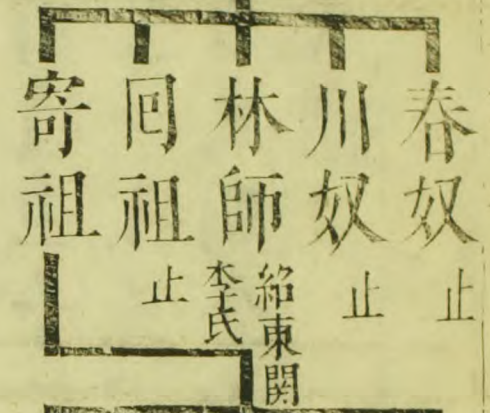 春奴 止
川奴 止
林師 紹東関
李氏
囘祖 止
寄祖